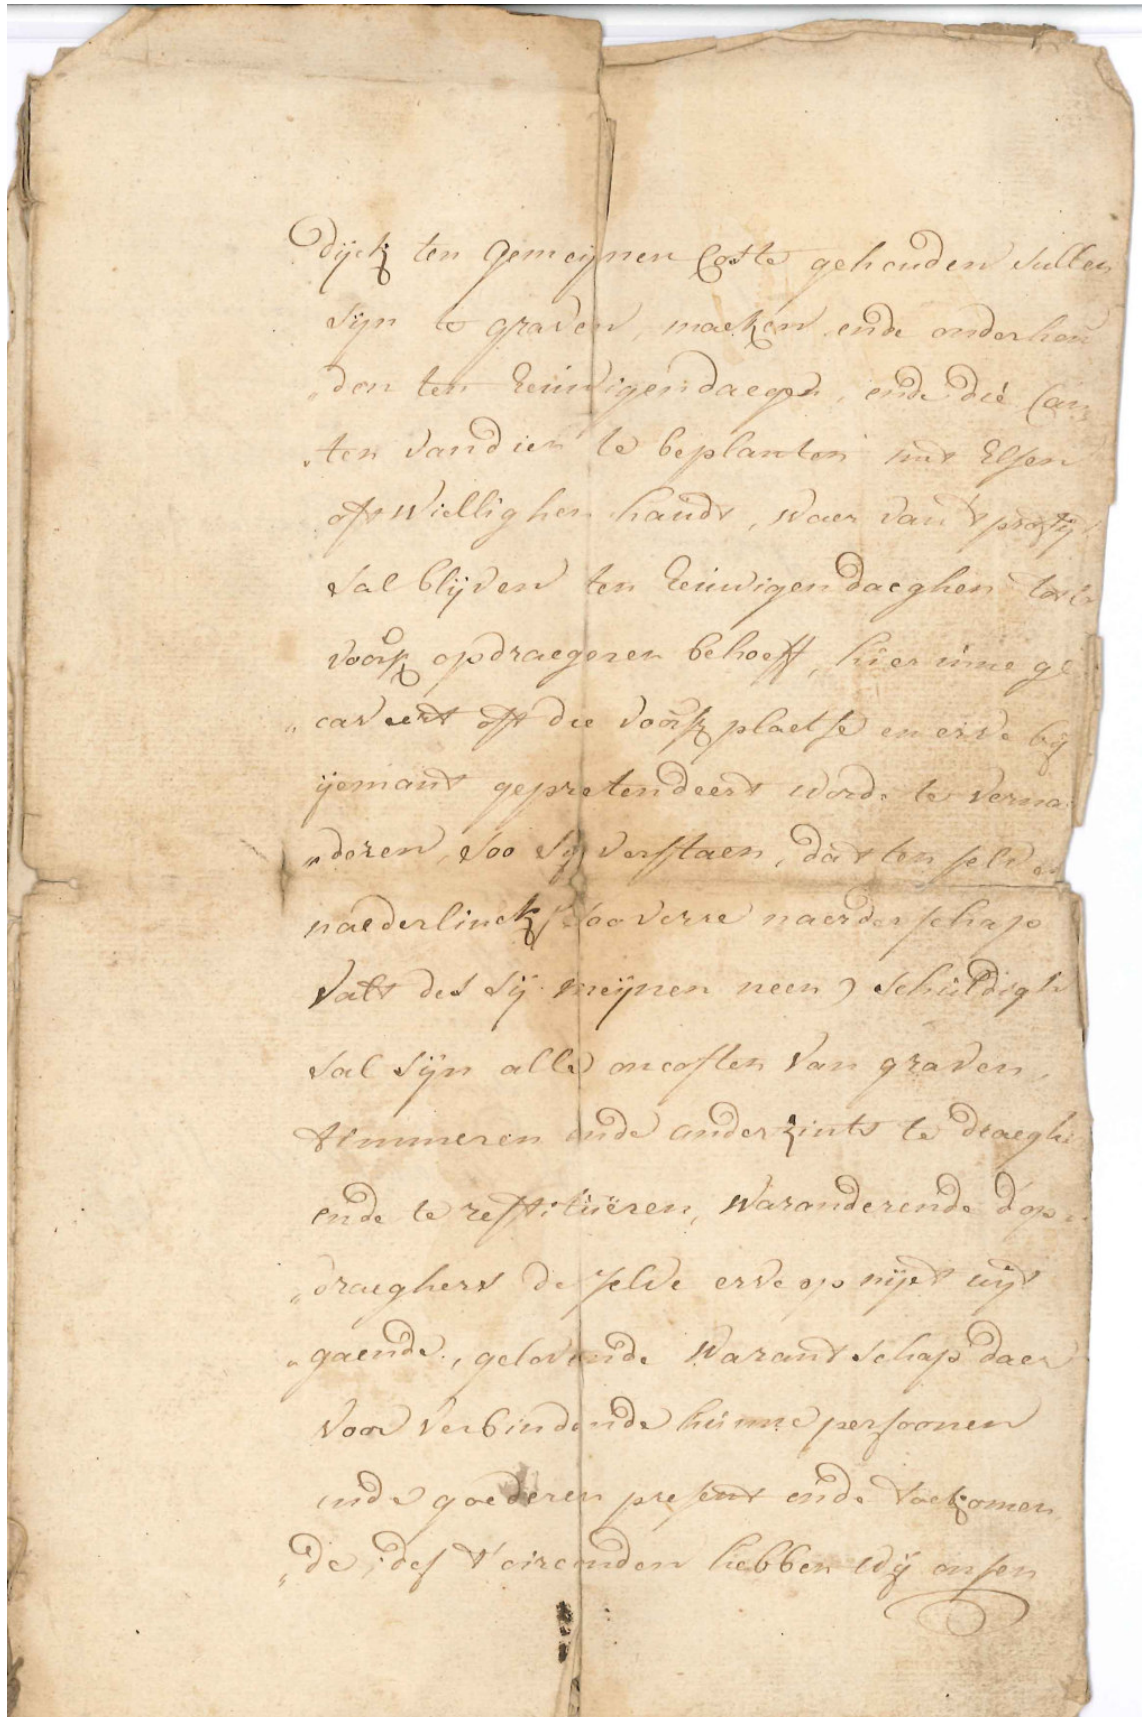 dijck ten gemeijnen Coste gehouden sullen
sijn te graven, maeken ende onderhou
„den ten Eeuwigendaegen, ende die Can
„ten vandien te beplanten met Elsen
oft Wiellighen haudt, waer van t profijt
sal blijven ten Eeuwigen daeghen tot
voors opdraegeren behoeff, hier inne ge
„caveert oft die voors plaetse en erve bij
ijemant gepretendeert worde te verna
„deren, soo sij verstaen, dat ten selve
naederlinck (soo verre naerderschap
valt des sij meijnen neen) schuldigh
sal sijn alle oncosten van graven,
timmeren ende anderzints te draeghen
ende te restitueren, waranderende d'op
„draeghers de selve erve op nijet uijt
„gaende, gelovende Warantschap daer
voor verbindende hunne persoonen
ende goederen present ende toekomen
„de, des t'oirconden hebben wij onsen